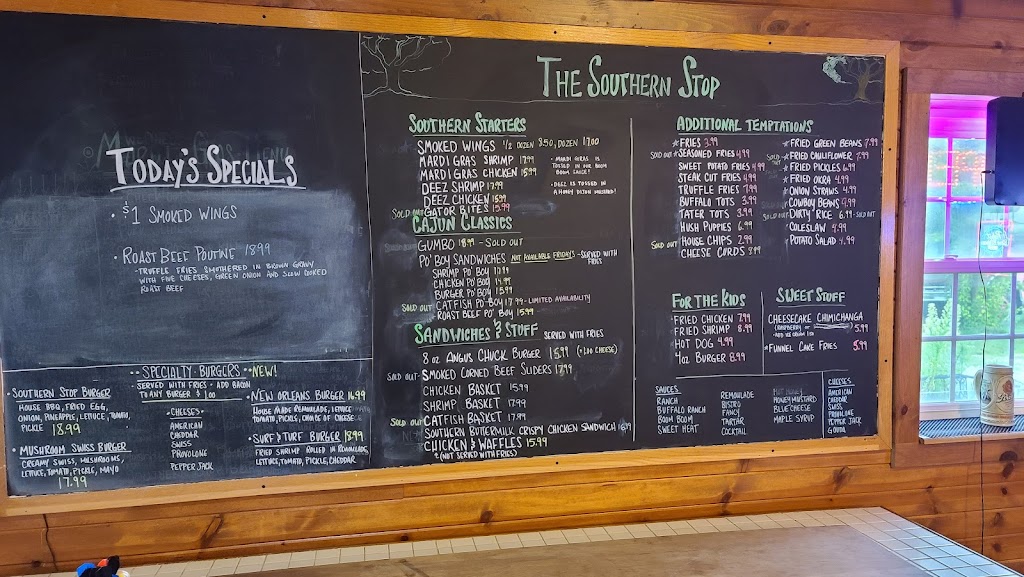 TODAY'S SPECIALS
• $1 SMOKED WINGS
• ROAST BEEF POUTINE 18.99
- TRUFFLE FRIES SMOTHERED IN BROWN GRAVY
WITH FIVE CHEESES, GREEN ONION AND SLOW COOKED
ROAST BEEF
•• SPECIALTY BURGERS •• NEW!
SERVED WITH FRIES • ADD BACON
TO ANY BURGER $1.00
• SOUTHERN STOP BURGER
HOUSE BBQ, FRIED EGG,
ONION, PINEAPPLE, LETTUCE, TOMATO,
PICKLE 18.99
• MUSHROOM SWISS BURGER
CREAMY SWISS, MUSHROOMS,
LETTUCE, TOMATO, PICKLE, MAYO
17.99
• CHEESES •
AMERICAN
CHEDDAR
SWISS
PROVOLONE
PEPPER JACK
• NEW ORLEANS BURGER 16.99
HOUSE MADE REMOULADE, LETTUCE
TOMATO, PICKLE, CHOICE OF CHEESE
• SURF & TURF BURGER 18.99
FRIED SHRIMP ROLLED IN REMOULADE,
LETTUCE, TOMATO, PICKLE, CHEDDAR
THE SOUTHERN STOP
SOUTHERN STARTERS
SMOKED WINGS 1/2 DOZEN 9.50, DOZEN 17.00
MARDI GRAS SHRIMP 17.99
MARDI GRAS CHICKEN 15.99
DEEZ SHRIMP 17.99
DEEZ CHICKEN 15.99
SOLD OUT GATOR BITES 15.99
• MARDI GRAS IS
TOSSED IN OUR BOOM
BOOM SAUCE!
• DEEZ IS TOSSED IN
A HONEY DIJON MUSTARD!
CAJUN CLASSICS
GUMBO 18.99 - SOLD OUT
PO' BOY SANDWICHES NOT AVAILABLE FRIDAYS - SERVED WITH
FRIES
SHRIMP PO' BOY 17.99
CHICKEN PO' BOY 14.99
BURGER PO' BOY 15.99
SOLD OUT CATFISH PO' BOY 17.99 - LIMITED AVAILABILITY
ROAST BEEF PO' BOY 15.99
SANDWICHES & STUFF SERVED WITH FRIES
8 OZ ANGUS CHUCK BURGER 15.99 (+1.00 CHEESE)
SOLD OUT - SMOKED CORNED BEEF SLIDERS 17.99
CHICKEN BASKET 15.99
SHRIMP BASKET 17.99
SOLD OUT CATFISH BASKET 17.99
SOUTHERN BUTTERMILK CRISPY CHICKEN SANDWICH 16.99
CHICKEN & WAFFLES 15.99
*(NOT SERVED WITH FRIES)
ADDITIONAL TEMPTATIONS
*FRIES 3.99
SOLD OUT *SEASONED FRIES 4.99
SWEET POTATO FRIES 4.99
STEAK CUT FRIES 4.99
TRUFFLE FRIES 7.99
BUFFALO TOTS 3.99
TATER TOTS 3.99
HUSH PUPPIES 6.99
SOLD OUT HOUSE CHIPS 2.99
CHEESE CURDS 8.99
*FRIED GREEN BEANS 7.99
SOLD OUT *FRIED CAULIFLOWER 7.99
*FRIED PICKLES 6.99
*FRIED OKRA 4.99
*ONION STRAWS 4.99
COWBOY BEANS 4.99
SOLD OUT DIRTY RICE 6.99 - SOLD OUT
COLESLAW 4.99
POTATO SALAD 4.99
FOR THE KIDS
FRIED CHICKEN 7.99
FRIED SHRIMP 8.99
HOT DOG 4.99
4 OZ BURGER 8.99
SWEET STUFF
CHEESECAKE CHIMICHANGA
(RASPBERRY OR 5.99
- ADD ICE CREAM 1.50
*FUNNEL CAKE FRIES 5.99
SAUCES
RANCH
BUFFALO RANCH
BOOM BOOM
SWEET HEAT
REMOULADE
BISTRO
FANCY
TARTAR
COCKTAIL
HOT HONEY
HONEY MUSTARD
BLUE CHEESE
MAPLE SYRUP
CHEESES
AMERICAN
CHEDDAR
SWISS
PROVOLONE
PEPPER JACK
GOUDA